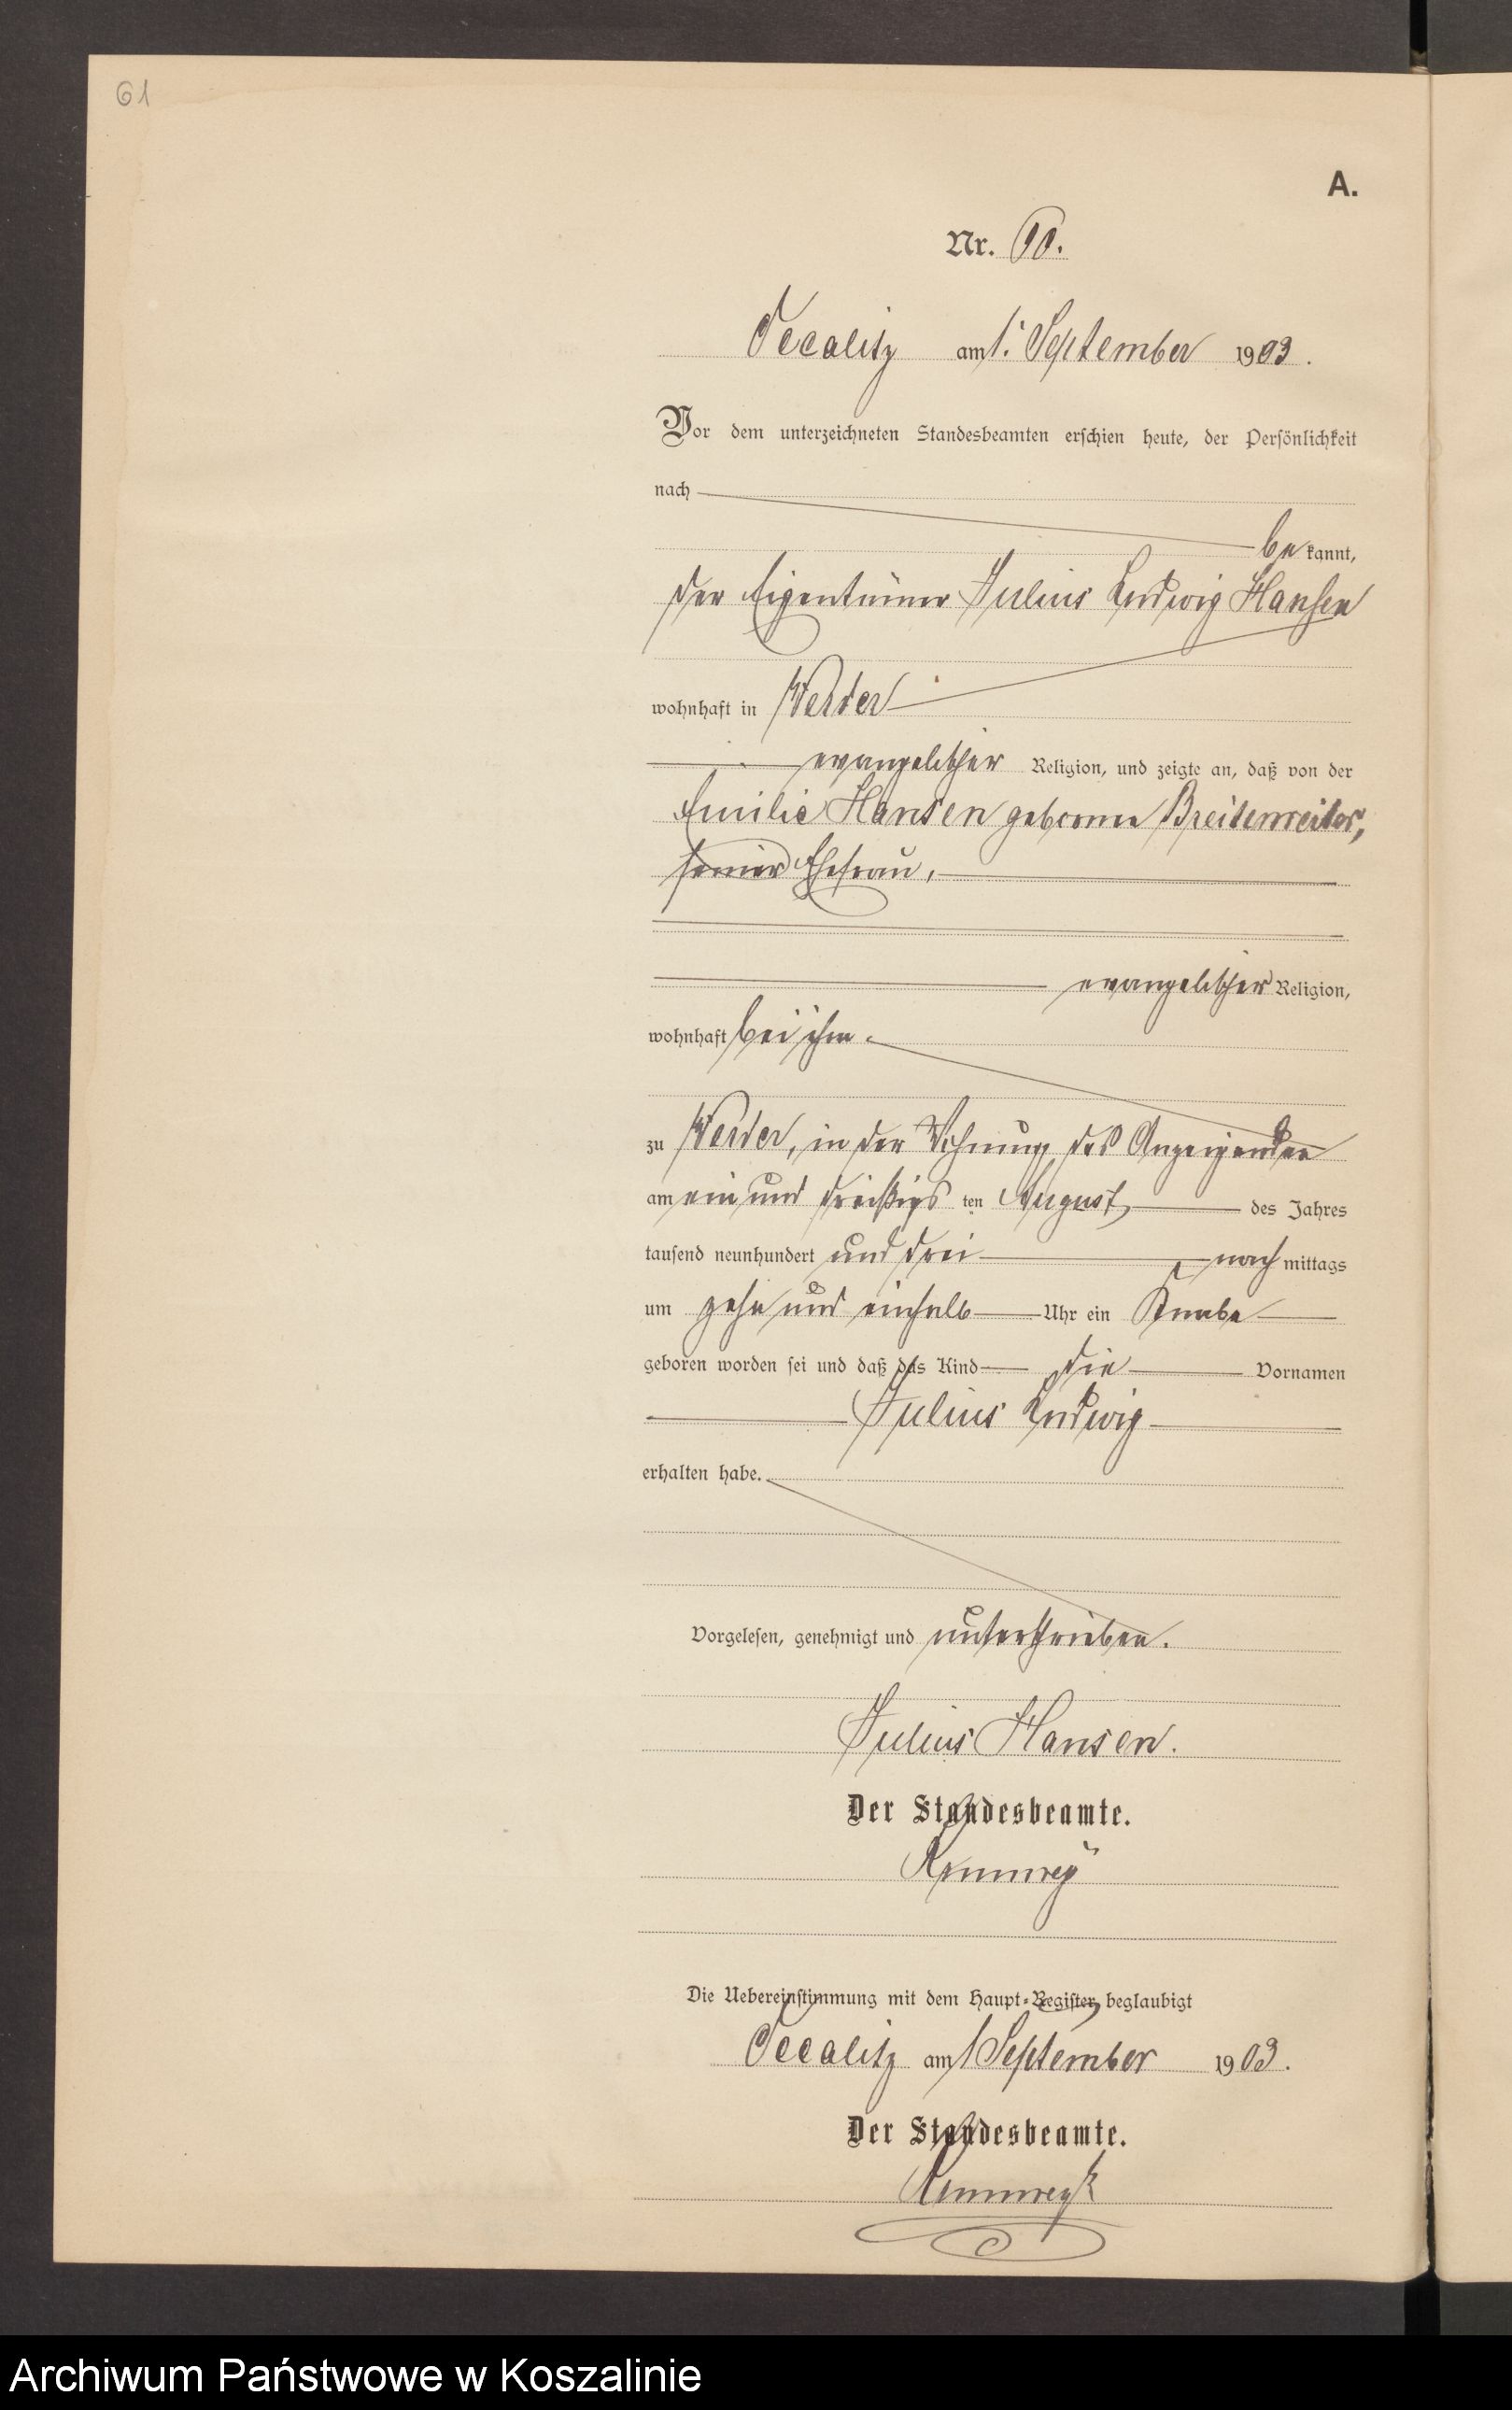 61
A.
Nr. 60.
am 1. September 1903.
Vor dem unterzeichneten Standesbeamten erschien heute, der Persönlichkeit
nach
be kannt,
der Eigentümer Julius Ludwig Hansen
wohnhaft in Werder
evangelischer Religion, und zeigte an, daß von der
Emilie Hansen geborenen
seiner Ehefrau,
evangelischer Religion,
wohnhaft bei ihm
zu Werder, in der Wohnung des Anzeigenden
am ein und dreißigs ten August des Jahres
tausend neunhundert und drei nach mittags
um zehn und einhalb Uhr ein Knabe
geboren worden sei und daß das Kind die Vornamen
Julius Ludwig
erhalten habe.
Vorgelesen, genehmigt und unterschrieben.
Julius Hansen.
Der Standesbeamte.
Die Uebereinstimmung mit dem Haupt-Register beglaubigt
am 1 September 1903.
Der Standesbeamte.
Archiwum Państwowe w Koszalinie